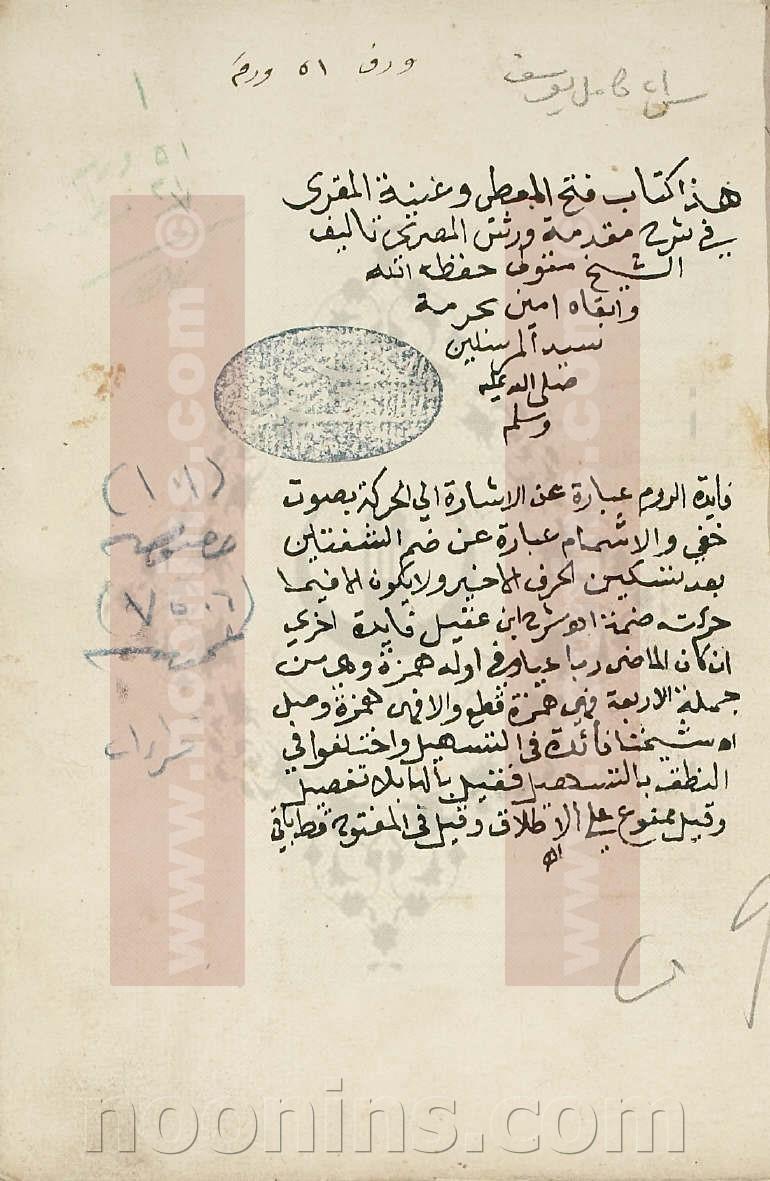 ورق ٥١ ورقة
كامل يوسف
١
٥١
هذا كتاب فتح المعطى وغنية المقرى
في شرح مقدمة ورش المصرى تاليف
الشيخ متولى حفظه الله
وابقاه امين بحرمة
سيد المرسلين
صلى الله عليه
وسلم
فايدة الروم عبارة عن الاشارة الي الحركة بصوت
خفي والاشمام عبارة عن ضم الشفتين
بعد تسكين الحرف الاخير ولا يكون الا فيما
حركته ضمة اه شرح ابن عقيل فايدة اخري
ان كان الماضى رباعيا وفي اوله همزة وهي من
جملة الاربعة فهى همزة قطع والا فهى همزة وصل
اه شيخنا فائدة فى التسهيل واختلفوا في
النطق بالتسهيل فقيل بالها بلا تفصيل
وقيل ممنوع على الاطلاق وقيل فى المفتوح قط باقي
اه
(١٠١)
خصوصية
(٧٥٠٦)
قراءات
www.noonins.com ©
www.noonins.com ©
noonins.com